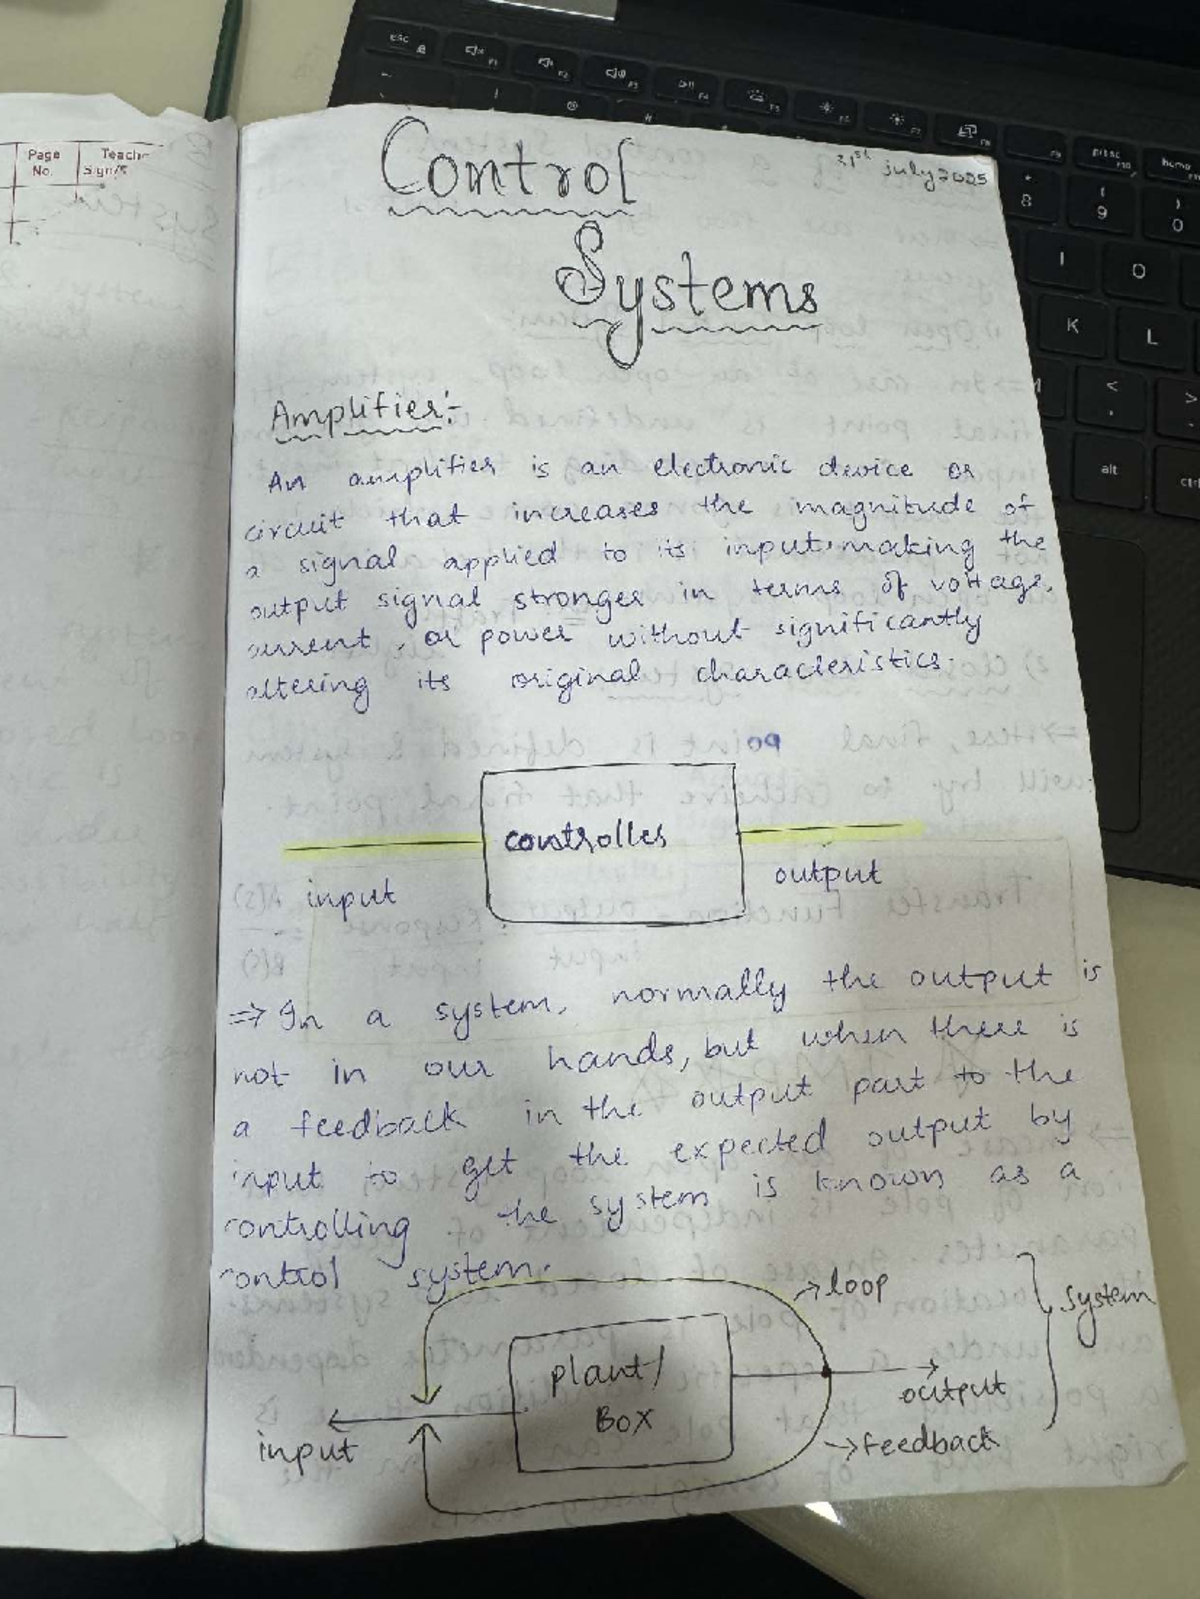 Page No.
Teach
Sign/
Control
31st july 2025
Systems
Amplifier:-
An amplifier is an electronic device or
circuit that increases the magnitude of
a signal applied to its input, making the
output signal stronger in terms of voltage,
current, or power without significantly
altering its original characteristics.
controller
input
output
⇒ In a system, normally the output is
not in our hands, but when there is
a feedback in the output part to the
input to get the expected output by
controlling the system is known as a
control system.
loop
system
plant/
BOX
output
input
feedback
esc
F1
F2
F3
F4
F5
F6
F7
F8
F9
prtsc
F10
home
8
(
9
)
0
I
O
K
L
<
,
>
.
alt